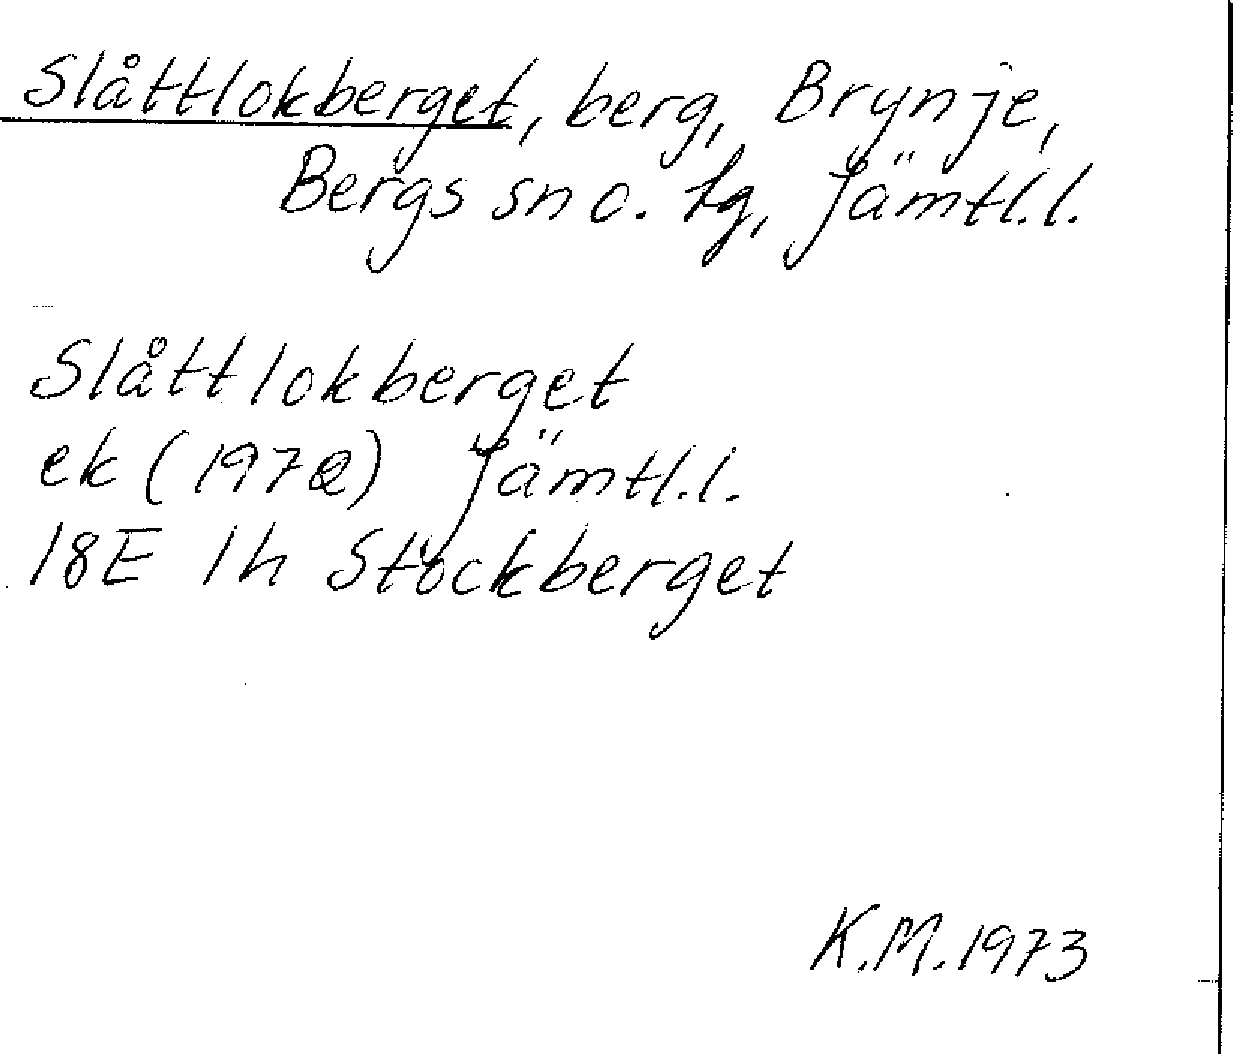 Slåttlokberget, berg, Brynje,
Bergs sn o. tg, Jämtl.l.
Slåttlokberget
ek (1972) Jämtl.l.
18E 1h Stöckberget
K.M. 1973